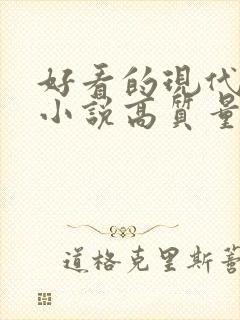 好看的現代
小說高質量
道格克里斯